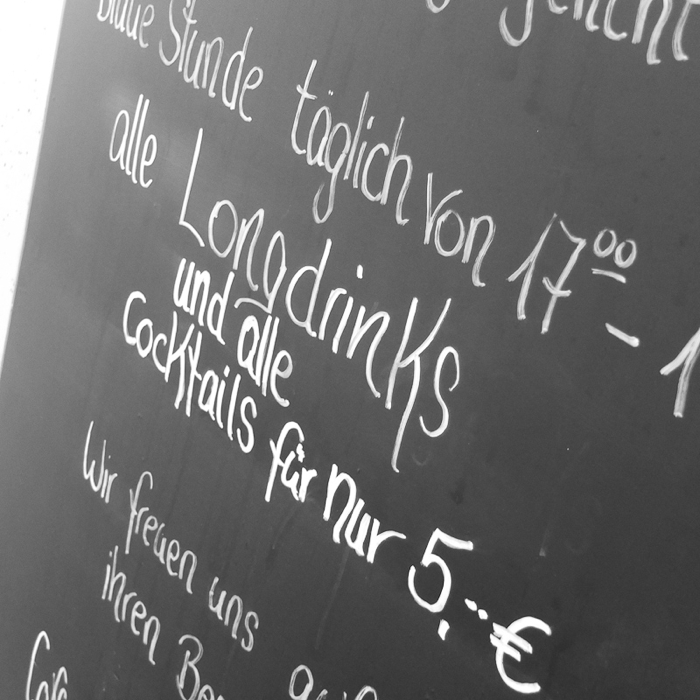 Blaue Stunde täglich von 17⁰⁰ -
alle Longdrinks
und alle
Cocktails für nur 5,-- €
Wir freuen uns
ihren